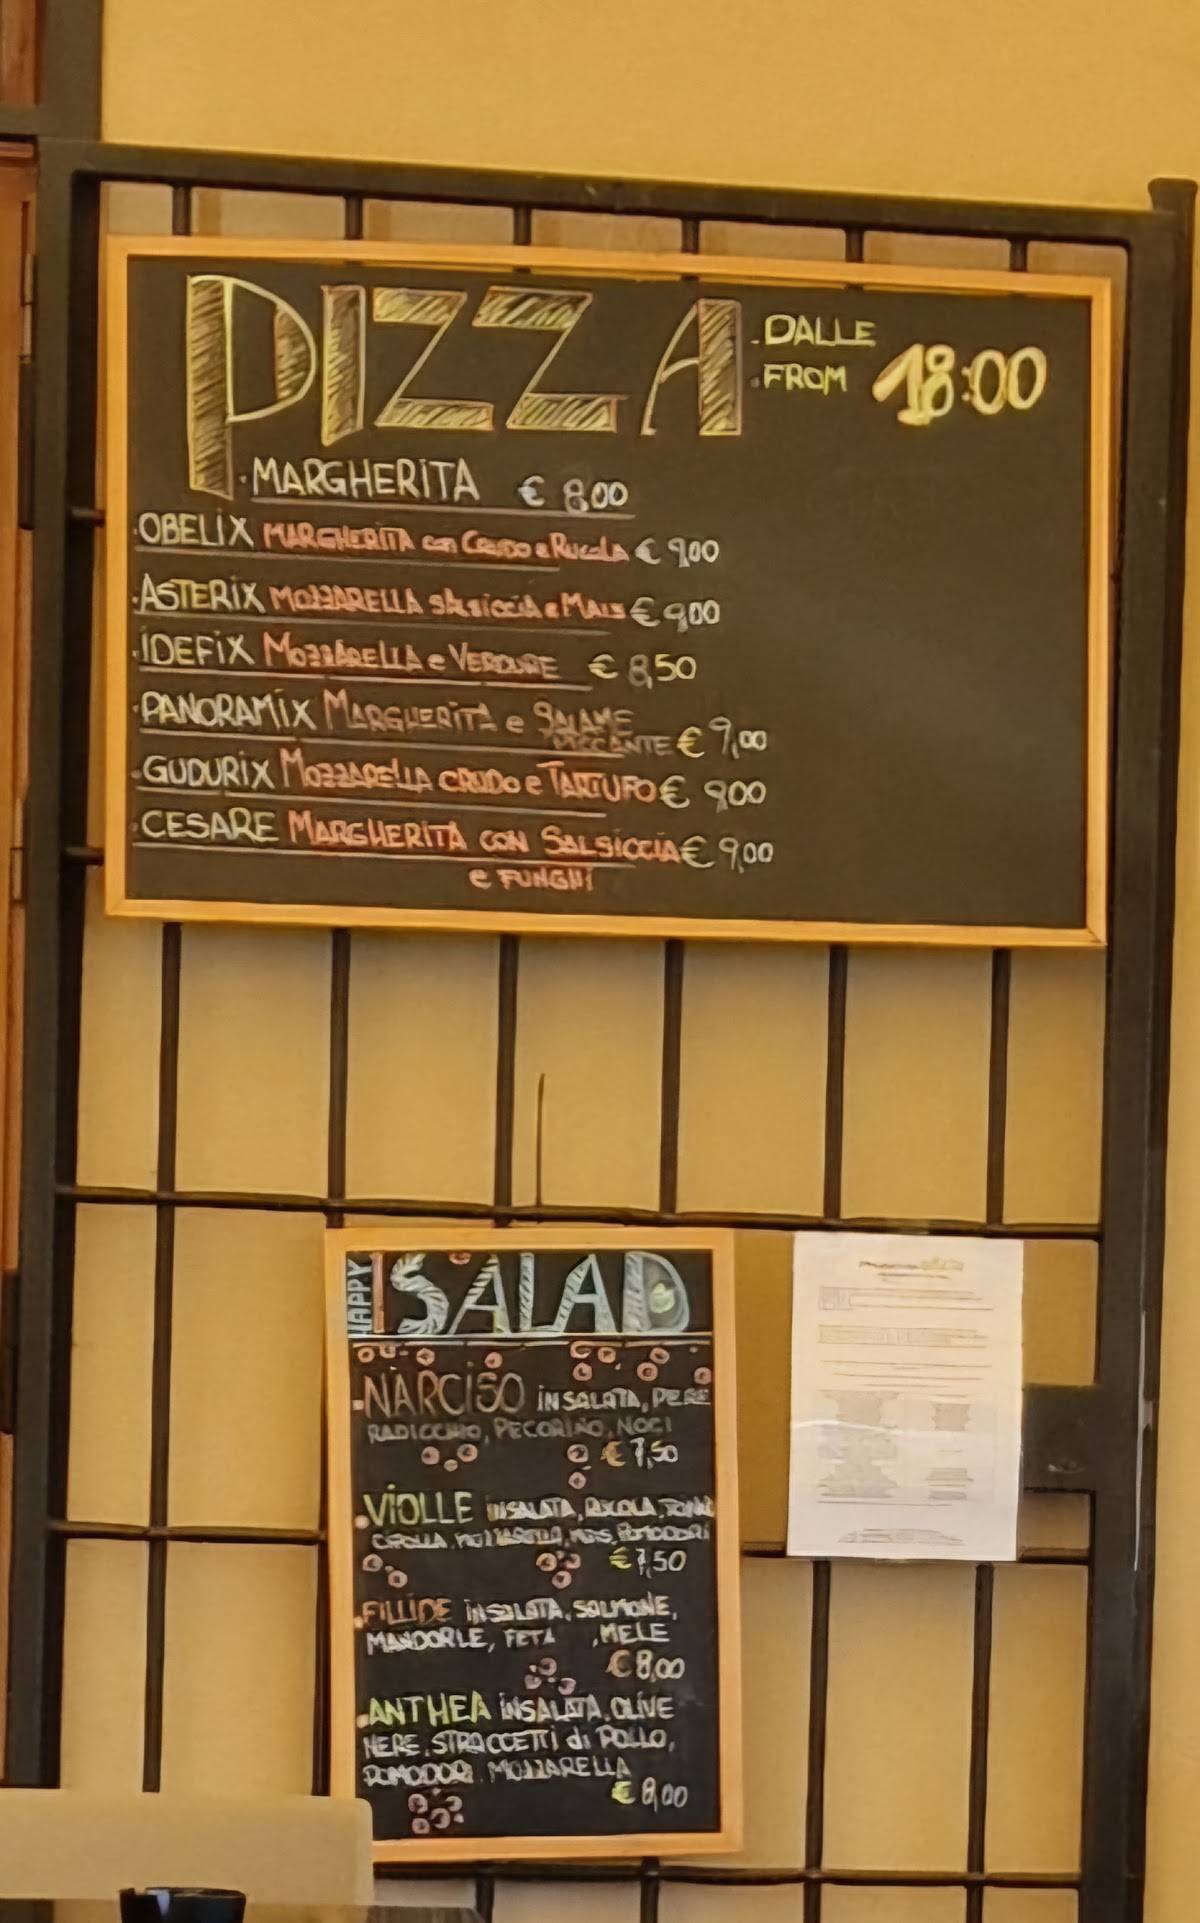 PIZZA
.DALLE
.FROM 18:00
.MARGHERITA € 8,00
.OBELIX MARGHERITA con CRUDO e RUCOLA € 9,00
.ASTERIX MOZZARELLA SALSICCIA e MAIS € 9,00
.IDEFIX MOZZARELLA e VERDURE € 8,50
.PANORAMIX MARGHERITA e SALAME
PICCANTE € 9,00
.GUDURIX MOZZARELLA CRUDO e TARTUFO € 9,00
.CESARE MARGHERITA CON SALSICCIA € 9,00
e FUNGHI
HAPPY
SALAD
.NARCISO INSALATA, PERE
RADICCHIO, PECORINO, NOCI
€ 7,50
.VIOLLE INSALATA, RUCOLA, TONNO
CIPOLLA, MOZZARELLA, MAIS, POMODORI
€ 7,50
.FILLIDE INSALATA, SALMONE,
MANDORLE, FETA ,MELE
€ 8,00
.ANTHEA INSALATA, OLIVE
NERE, STRACCETTI di POLLO,
POMODORI, MOZZARELLA
€ 8,00